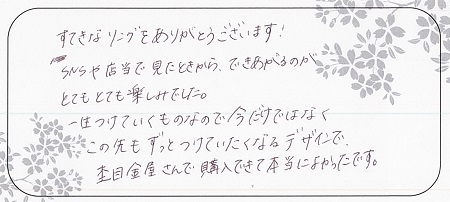 すてきなリングをありがとうございます!
SNSや店当で見たときから、できあがるのが
とてもとても楽しみでした。
一生つけていくものなので今だけではなく
この先もずっとつけていたくなるデザインで、
杢目金屋さんで購入できて本当によかったです。